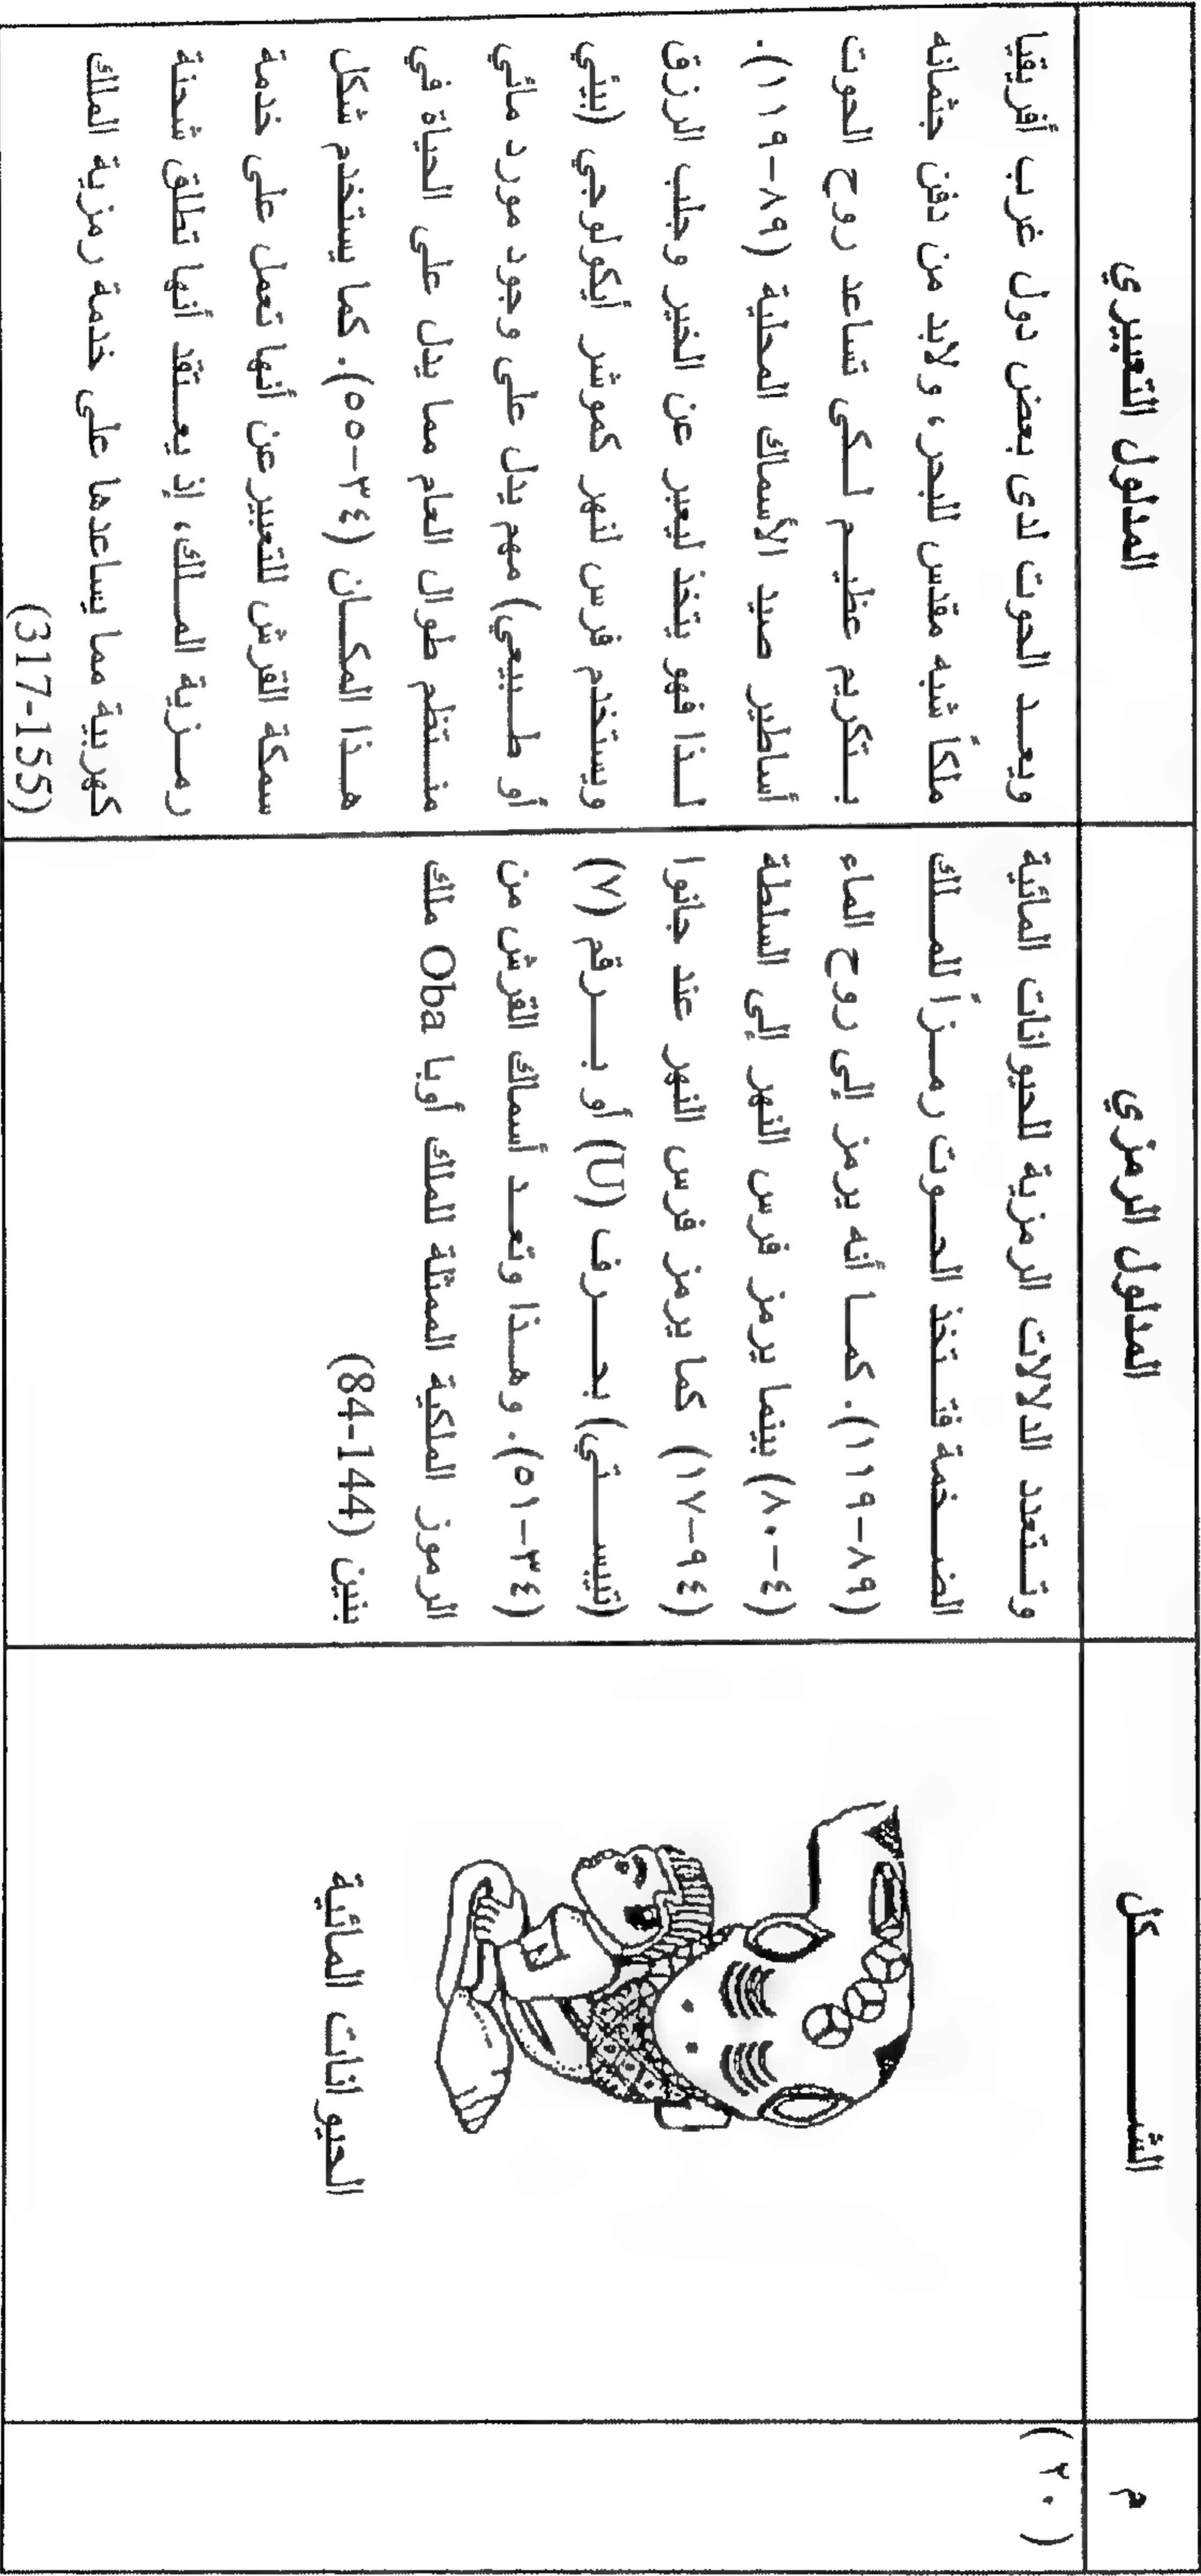 م
الشـــــــــكل
المدلول الرمزي
المدلول التعبيري
(٢٠)
الحيوانات المائية
وتـــتعدد الدلالات الرمزية للحيوانات المائية
الضـــخمة فتـــتخذ الحـــوت رمـــزاً للمـــلك
(٨٩-١١٩). كمـــا أنه يرمز إلى روح الماء
(٤-٨٠) بينما يرمز فرس النهر إلى السلطة
(٩٤-١٧) كما يرمز فرس النهر عند جانوا
(تييســـتي) بحـــرف (U) أو بـــرقم (٧)
(٣٤-٥١). وهـــذا وتعـــد أسماك القرش من
الرموز الملكية الممثلة للملك أوبا Oba ملك
بنين (84-144)
ويعـــد الحوت لدى بعض دول غرب أفريقيا
ملكاً شبه مقدس للبحر، ولابد من دفن جثمانه
بـــتكريم عظيـــم لـــكى تساعد روح الحوت
أساطير صيد الأسماك المحلية (٨٩-١١٩).
لـــذا فهو يتخذ ليعبر عن الخير وجلب الرزق
ويستخدم فرس لنهر كموشر أيكولوجي (بيئي
أو طـــبيعي) مهم يدل على وجود مورد مائي
منـــتظم طوال العام مما يدل على الحياة في
هـــذا المكـــان (٣٤-٥٥). كما يستخدم شكل
سمكة القرش للتعبير عن أنها تعمل على خدمة
رمـــزية المـــلك، إذ يعـــتقد أنها تطلق شحنة
كهربية مما يساعدها على خدمة رمزية الملك
(317-155)